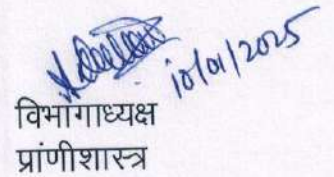 10/01/2025
विभागाध्यक्ष
प्राणीशास्त्र